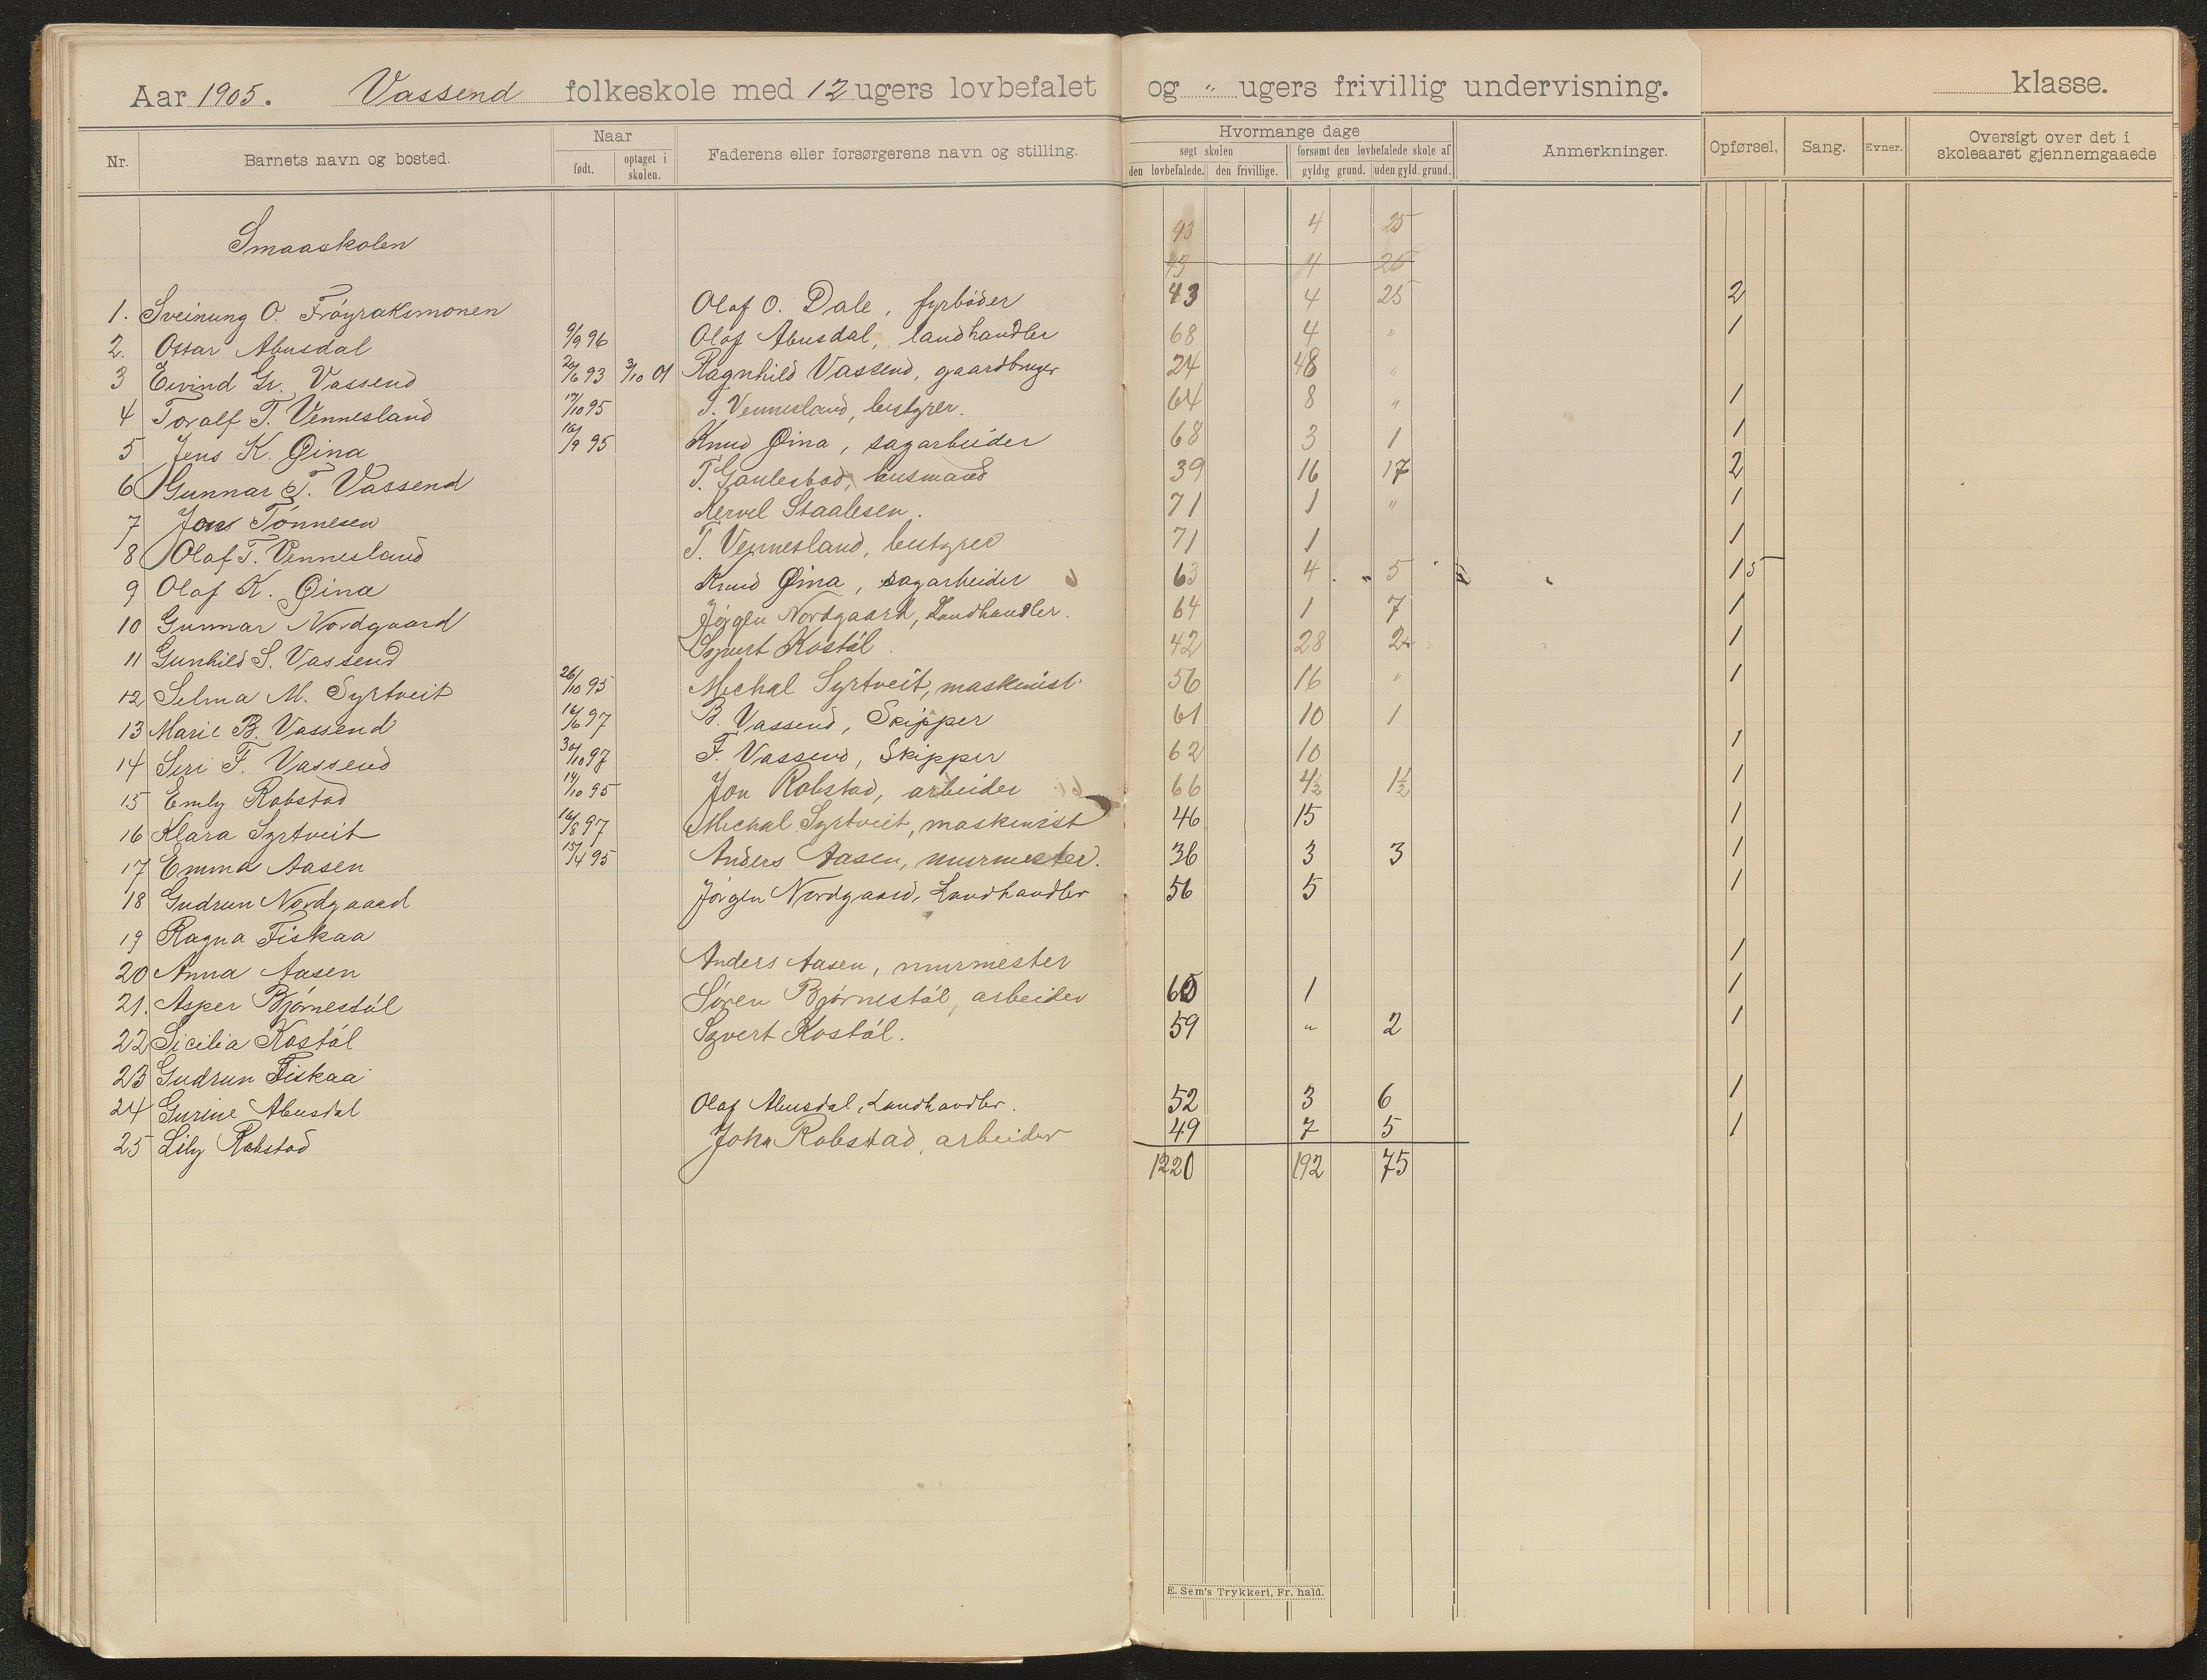 Aar 1905. Vassend folkeskole med 12 ugers lovbefalet og " ugers frivillig undervisning. klasse.
Nr. Barnets navn og bosted. Naar født. optaget i skolen. Faderens eller forsørgerens navn og stilling. Hvormange dage søgt skolen den lovbefalede. den frivillige. forsømt den lovbefalede skole af gyldig grund. uden gyld. grund. Anmerkninger. Opførsel, Sang. Evner. Oversigt over det i skoleaaret gjennemgaaede
Smaaskolen 43 4 25
43 4 25
1. Sveinung O. Frøyraksmonen Olaf O. Dale, fyrbøder 43 4 25 2
2. Ottar Abusdal 9/9 96 Olaf Abusdal, landhandler 68 4 " 1
3 Eivind Gr. Vassend 26/6 93 3/10 01 Ragnhild Vassend, gaardbruger 24 48 "
4 Toralf T. Vennesland 17/10 95 T. Vennesland, bestyrer. 64 8 " 1
5 Jens K. Øina 16/9 95 Knud Øina, sagarbeider 68 3 1 1
6 Gunnar T. Vassend T. Gaulestad, husmand 39 16 17 2
7 Jons Tønnesen Kervel Staalesen. 71 1 " 1
8 Olaf T. Vennesland T. Vennesland, bestyrer 71 1 1
9 Olaf K. Øina Knud Øina, sagarbeider 63 4 5 15
10 Gunnar Nordgaard Jørgen Nordgaard, Landhandler. 64 1 7 1
11 Gunhild S. Vassend Sygvert Kostøl. 42 28 2 1
12 Selma M. Syrtveit 26/10 95 Michal Syrtveit, maskinist. 56 16 " 1
13 Marie B. Vassend 16/6 97 B. Vassend, Skipper 61 10 1
14 Siri F. Vassend 30/10 97 F. Vassend, Skipper 62 10 1
15 Emly Robstad 14/10 95 Jon Robstad, arbeider 66 4½ 1½ 1
16 Klara Syrtveit 16/8 97 Michal Syrtveit, maskinist 46 15 1
17 Emma Aasen 15/4 95 Anders Aasen, murmester. 36 3 3 1
18 Gudrun Nordgaard Jørgen Nordgaard, Landhandler 56 5 1
19 Ragna Fiskaa
20 Anna Aasen Anders Aasen, murmester 1
21. Asper Bjørnestøl Søren Bjørnestøl, arbeider 60 1 1
22 Sicilia Kostøl Sgvert Kostøl. 59 " 2 1
23 Gudrun Fiskaa
24 Gurine Abusdal Olaf Abusdal, Landhandler. 52 3 6 1
25 Lily Robstad John Robstad, arbeider 49 7 5 1
1220 192 75
E. Sem's Trykkeri, Fr. hald.